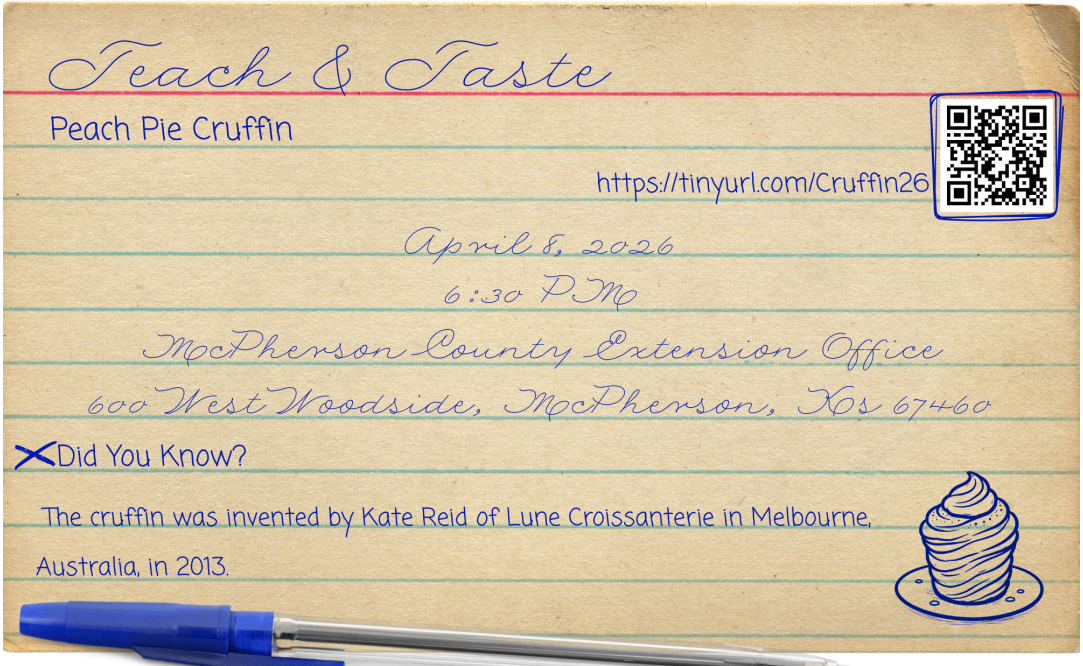 Teach & Taste
Peach Pie Cruffin
https://tinyurl.com/Cruffin26
April 8, 2026
6:30 PM
McPherson County Extension Office
600 West Woodside, McPherson, Ks 67460
Did You Know?
The cruffin was invented by Kate Reid of Lune Croissanterie in Melbourne,
Australia, in 2013.